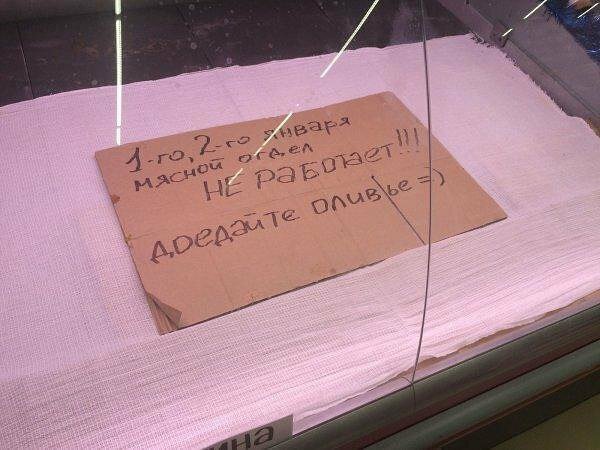 1-го, 2-го января
мясной отдел
НЕ РАБОТАЕТ!!!
доедайте оливье =)